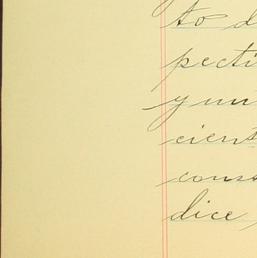 to d
pecti
y un
ciens
cons
dice,